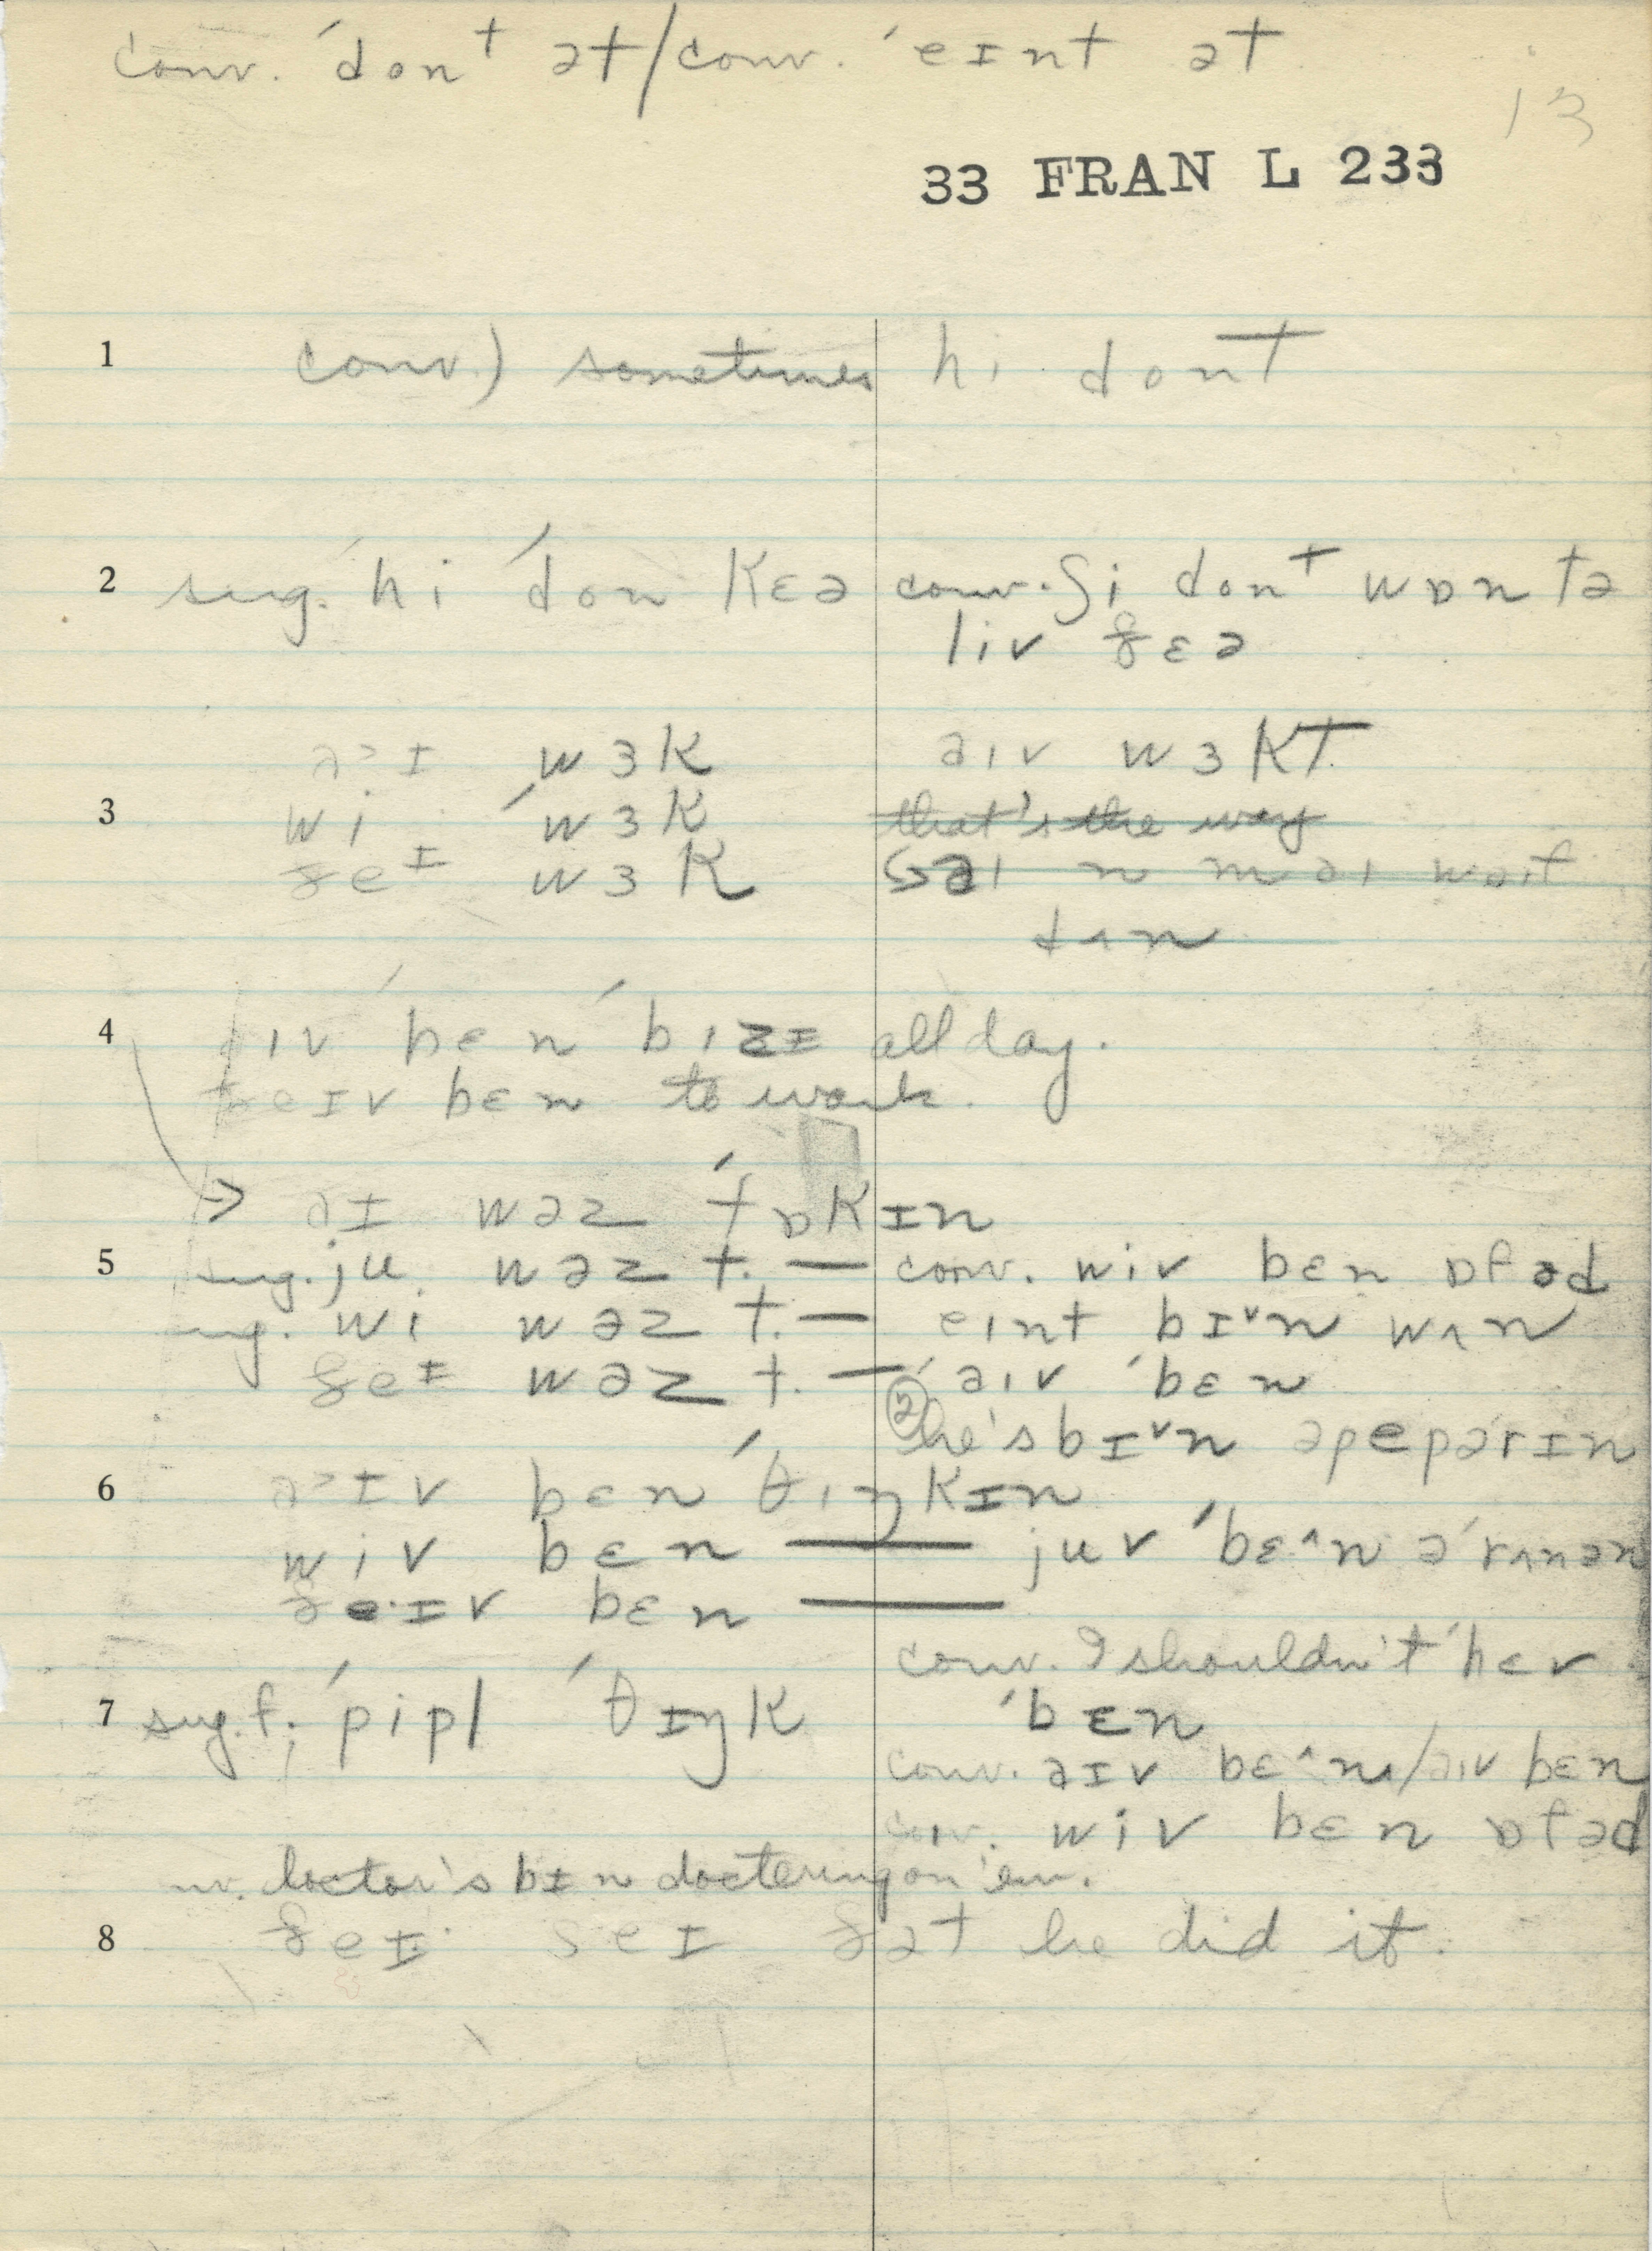 conv. ˈdonᵗ ət / conv. ˈeɪnt ət
13
33 FRAN L 233
1 conv.) sometimes hi dont
2 sug. hi ˈdon kɛə conv. ʃi donᵗ wɒn tə
liv ðɛə
əɪ wɜk əiv wɜkt
3 wi ˈwɜk that's the way
ðeɪ wɜk əi n məi waif
dʌn
4 əiv bɛn ˈbizɪ all day.
ðeɪv bɛn to work.
→ əɪ wəz ˈtɒkɪn
5 sug. ju wəz t. — conv. wiv bɛn ɒfəd
sug. wi wəz t. — eint bɪ˅n wʌn
ðeɪ wəz t. — ˈəiv ˈbɛn
② he's bɪ˅n əpepərɪn
6 əɪv bɛn ˈθiŋkɪn
wiv bɛn —— juv ˈbɛ^n əˈrʌnən
ðeɪv bɛn ——
conv. I shouldn't hev
7 sug. f; ˈpipl ˈθɪŋk ˈbɛn
conv. əɪv bɛ^n / əiv bɛn
conv. wiv bɛn ɒfəd
doctor's bɪn doctering on 'em.
8 ðeɪ seɪ ðət he did it.